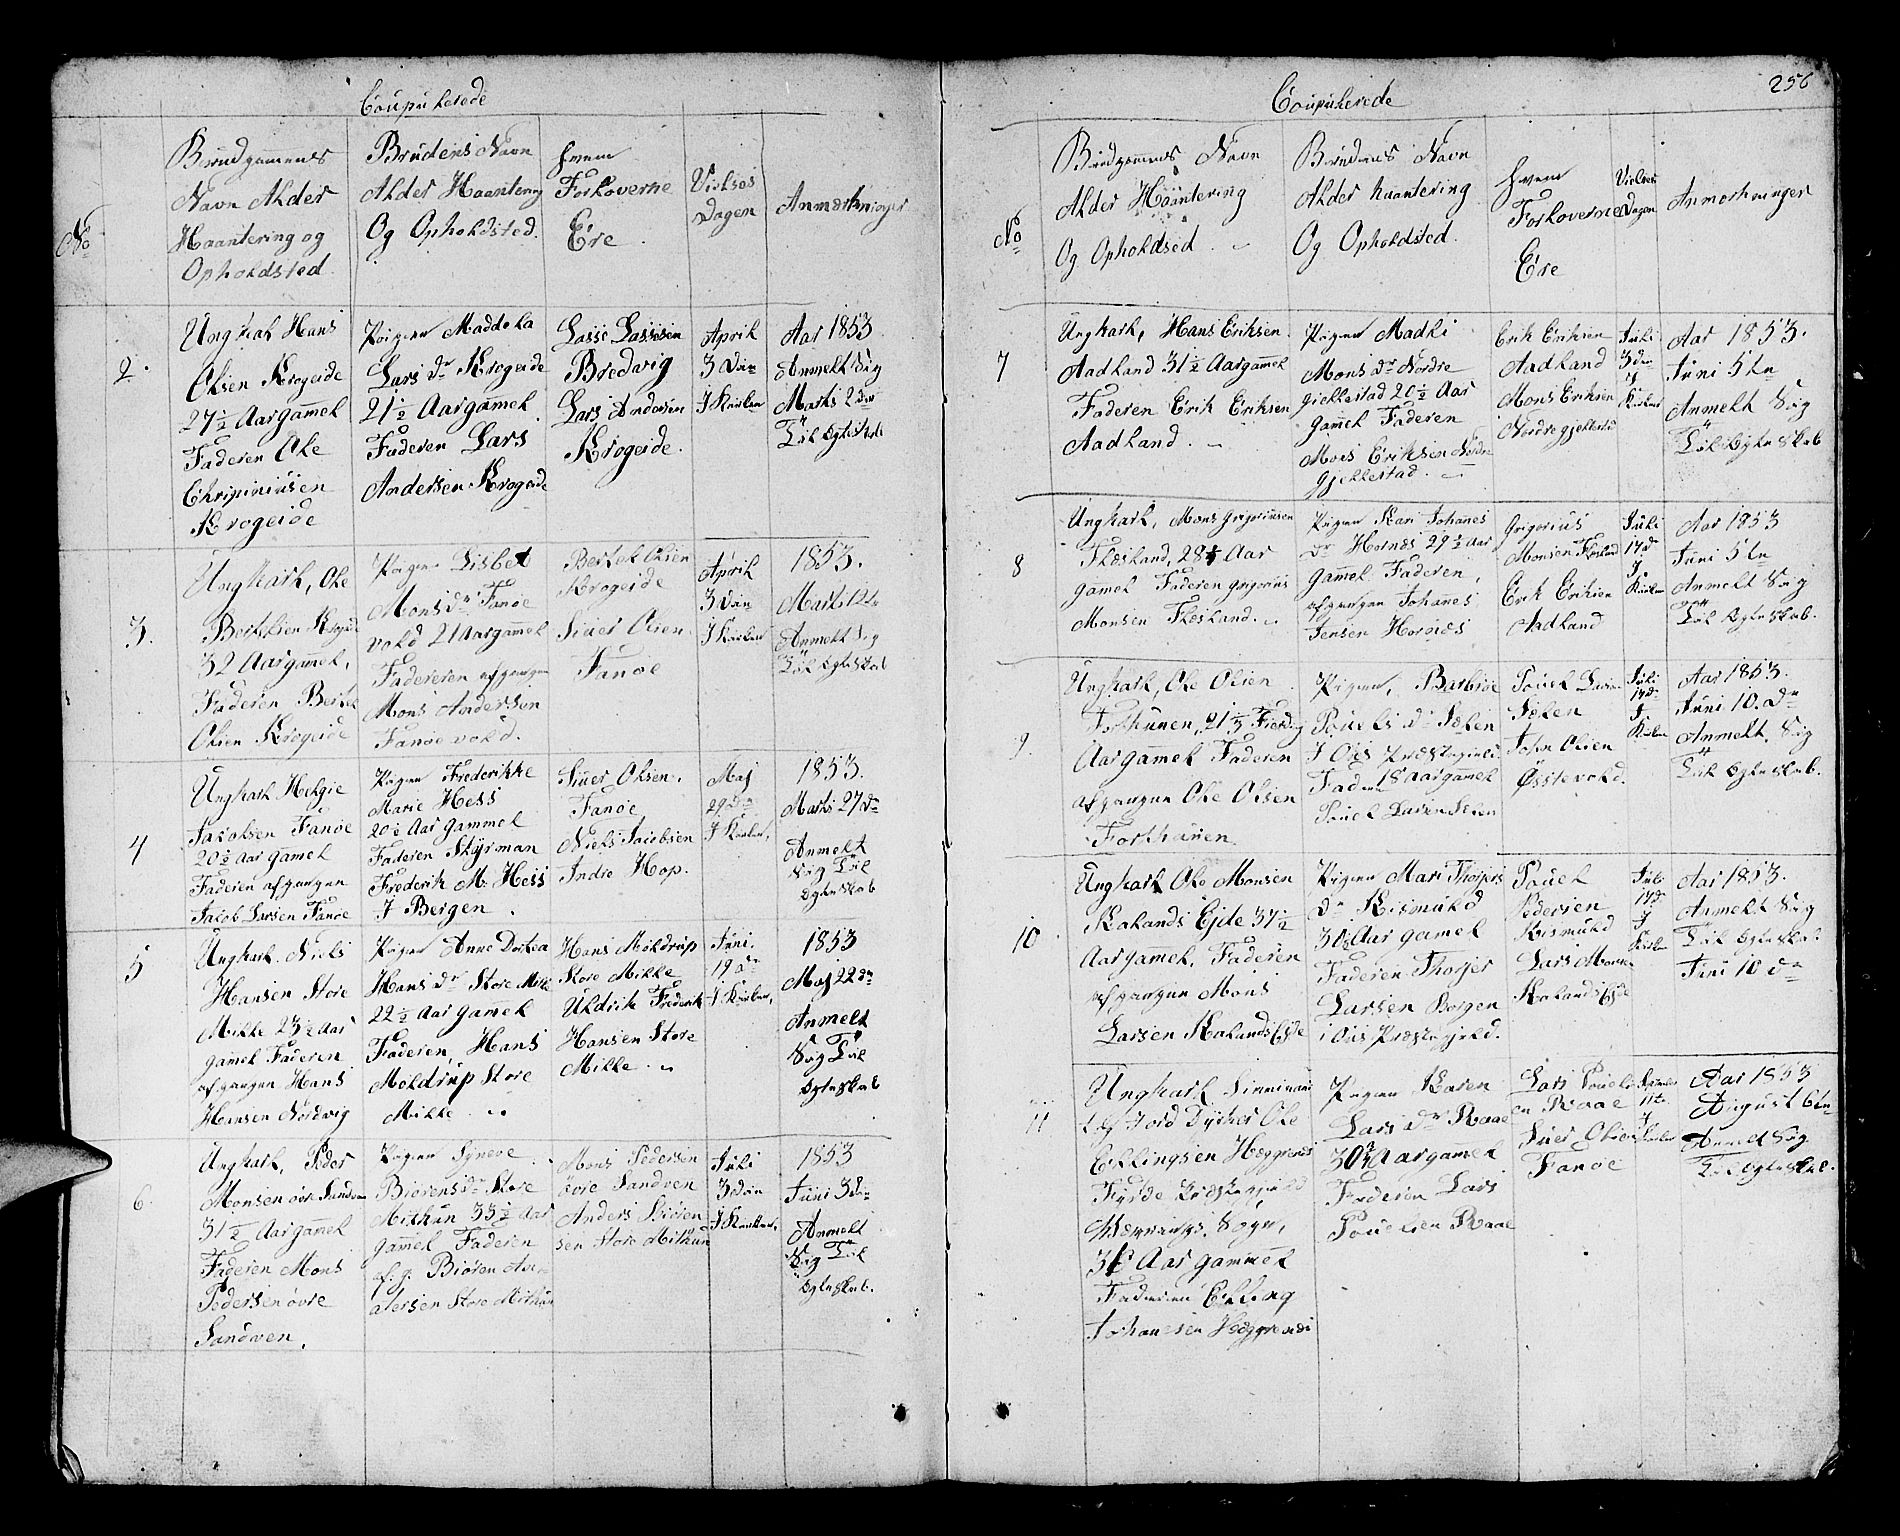 Coupulerede
No
Brudgamenes
Navn Alder
Haantering og
Opholdsted
Brudens Navn
Alder Haantering
Og Opholdsted.
hvem
Forloverne
Ere
Vielses
Dagen
Anmærkninger
2.
Ungkal Hans
Olsen Krogeide
27½ Aar gammel
Faderen Ole
Krogeide
Pigen Maddela
Lars dr Krogeide
21½ Aar gammel
Faderen Lars
Andersen Krogeide
Lasse Lassesen
Bredvig
Lars Andersen
Krogeide.
April
3 Dan
I Kirken
Aar 1853
Anmelt Sig
Marts 2 den
Til Egteskab
3.
Ungkarl, Ole
Bertelsen Krogeide
32 Aar gammel,
Faderen Bertel
Olsen Krogeide
Pigen Lisbet
Mons dr Fanøe
vold 21 Aar gammel
Faderen afgangen
Mons Andersen
Fanøe vold.
Bertel Olsen
Krogeide
Siver Olsen
Fanøe
April
3 Dan
I Kirken
1853.
Marts 12te
Anmelt Sig
Til Egteskab
4
Ungkarl Helgie
Jacobsen Fanøe
20½ Aar gamel
Faderen afgangen
Jacob Larsen Fanøe
Pigen Frederikke
Marie Hess
20½ Aar gammel
Faderen Styrman
Frederik M. Hess
I Bergen.
Siver Olsen.
Fanøe
Niels Jacobsen
Indre Hop.
Maj
29 Dn
I Kirken,
1853.
Marts 27 dn
Anmelt
Sig Til
Egteskab
5
Ungkarl. Niels
Hansen Store
Milde 23½ Aar
gamel Faderen
afgangen Hans
Hansen Nordvig
Pigen Anne Dortea
Hans dr Store Milde
22½ Aar gammel
Faderen, Hans
Moldrup Store
Milde
Hans Moldrup
Store Milde
Uldrik Frederik
Hansen Store
Milde
Juni
19 dn
I Kirken,
1853
Maj 22 dn
Anmelt
Sig Til
Egteskab
6.
Ungkarl, Peder
Monsen øvre Sandven
31½ Aar gammel
Faderen Mons
Pedersen øvre
Sandven.
Pigen Syneve
Biørens dr Store
Milthun 33½ Aar
gammel Faderen
af. g. Biøren An-
dersen Store Milthun
Mons Pedersen
øvre Sandven
Anders Biøren
sen Store Milthun
Juli
3 dan
I Kirken,
1853
Juni 3 dn
Anmelt
Sig Til
Egteskab.
256
Coupulerede
No
Brudgommens Navn
Alder Haantering
Og Opholdsed
Brudens Navn
Alder haantering
Og Opholdsted.
hvem
Forloverne
Ere
Vielses
Dagen
Anmerkninger
7
Ungkarl, Hans Eriksen
Aadland 31½ Aar gammel
Faderen Erik Eriksen
Aadland.
Pigen Madli
Mons dr Nordre
Gjellestad 20½ Aar
Gammel Faderen
Mons Eriksen Nordre
Gjellestad.
Erik Eriksen
Aadland
Mons Eriksen
Nordre gjellestad
Juli
3 dn
I
Kirken
Aar 1853.
Juni 5 te
Anmelt Sig
Til Egteskab
8
Ungkarl, Mons Grigoriusen
Fleseland, 28½ Aar
gammel Faderen Grigorius
Monsen Fleseland.
Pigen Kari Johanes
dr Hornes 29½ Aar
Gammel Faderen,
afgangen Johannes
Jensen Hornes
Grigorius
Monsen Fleseland
Erik Eriksen
Aadland
Juli
17 dn
I
Kirken
Aar 1853
Juni 5 te
Anmelt Sig
Til Egteskab.
9
Ungkarl, Ole Olsen
Forthunen, 21
Aar gammel Faderen
afgangen Ole Olsen
Forthunen
Pigen, Barbroe
Pouels dr Sælen
I Os Prestegjeld
Faderen 18 Aar gamel
Pouel Larsen Sælen
Pouel Larsen
Sælen
John Olsen
Østevold.
Juli
17 dn
I
Kirken
Aar 1853.
Juni 10. dn
Anmelt. Sig
Til Egteskab.
10
Ungkarl Ole Monsen
Kalands Eyde 37½
Aar gammel, Faderen
afgangen Mons
Larsen Kalands Eyde
Pigen Mari Thorjers
dr Rismuld
30 Aar gamel
Faderen Thorjer
Larsen Borgen
i Ous Præstegjeld.
Pouel
Pedersen
Rismuld
Lars Monsen
Kalands Eyde
Juli
17 dn
I
Kirken
Aar 1853.
Anmelt Sig
Til Egteskab
Juni 10 dn
11
Ungkarl
Jord Dyrker Ole
Ellingsen Heggrenes
Fyrde Prestegjeld
Sogn,
Aar gammel
Faderen Elling
Johanesen Heggrenes
Pigen Karen
Lars dr Raae
30 Aar gammel
Faderen Lars
Pouelsen Raae
Lars Pouels
en Raae
Siver Olsen
Fanøe
11te
I
Kirken
Aar 1853
August 6 te
Anmelt Sig
Til Egteskab.